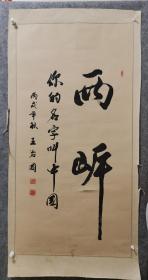 两岸
你的名字叫中国
丙戌年秋 王名刚